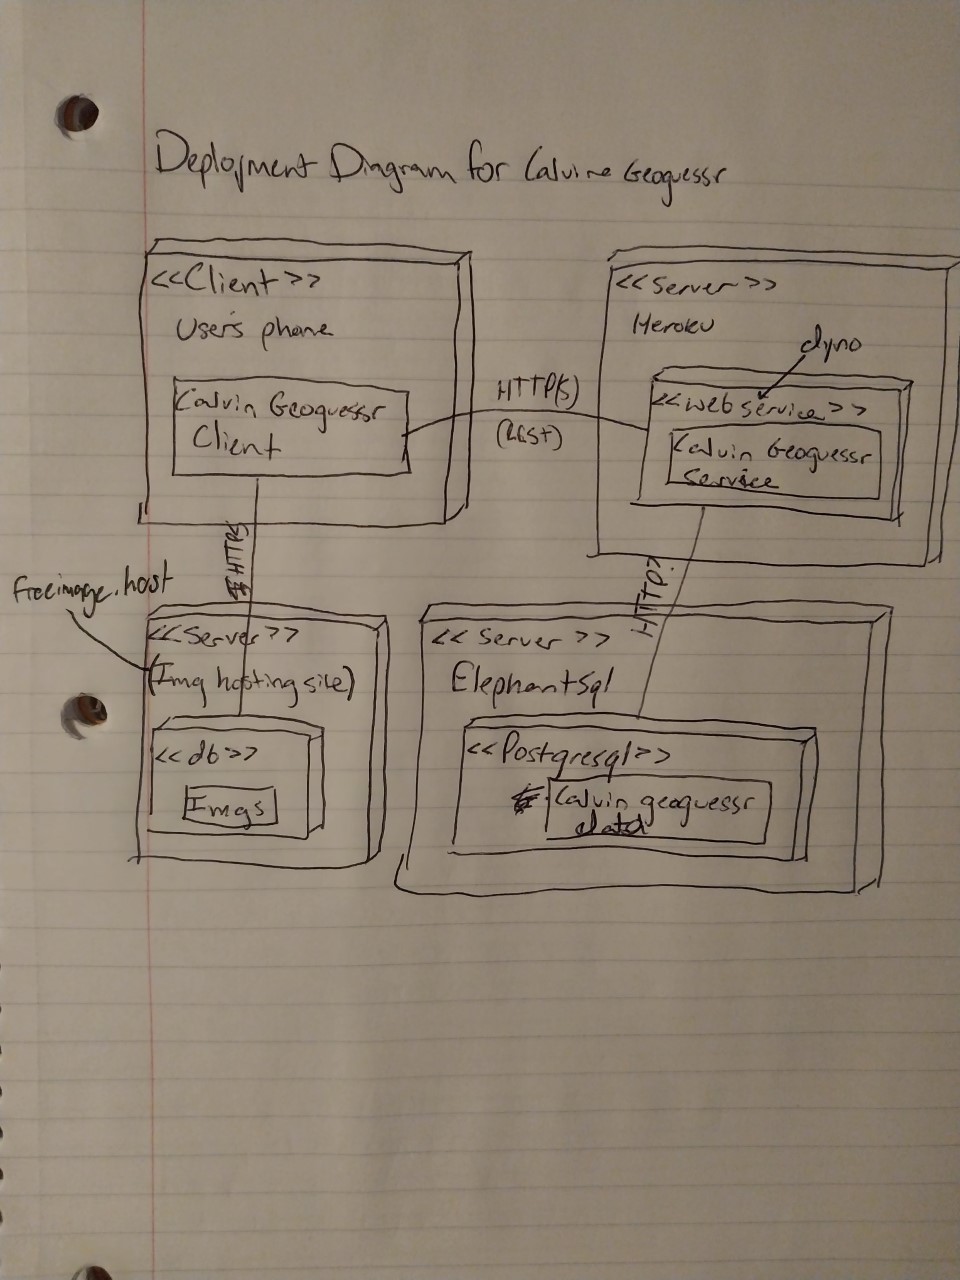 Deployment Diagram for Calvin Geoguessr
<<Client>>
User's phone
Calvin Geoguessr
Client
HTTP(S)
(REST)
<<Server>>
Heroku
dyno
<<web service>>
Calvin Geoguessr
Service
HTTPS
HTTP?
freeimage.host
<<Server>>
(Img hosting site)
<<db>>
Imgs
<<Server>>
ElephantSql
<<Postgresql>>
Calvin geoguessr
data